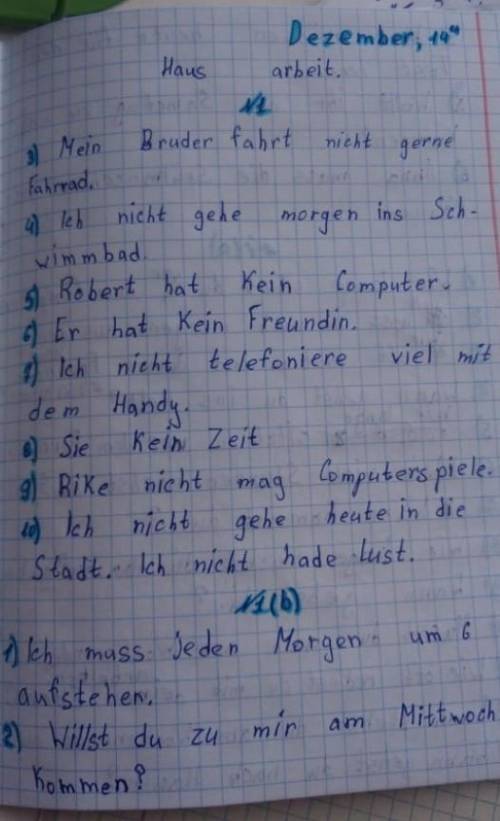 Dezember, 14ⁿ
Haus arbeit.
№1
3) Mein Bruder fahrt nicht gerne
Fahrrad.
4) Ich nicht gehe morgen ins Sch-
wimmbad.
5) Robert hat Kein Computer.
6) Er hat Kein Freundin.
7) Ich nicht telefoniere viel mit
dem Handy.
8) Sie Kein Zeit
9) Rike nicht mag Computerspiele.
10) Ich nicht gehe heute in die
Stadt. Ich nicht hade Lust.
№1(b)
1) Ich muss jeden Morgen um 6
aufstehen.
2) Willst du zu mir am Mittwoch
Kommen?